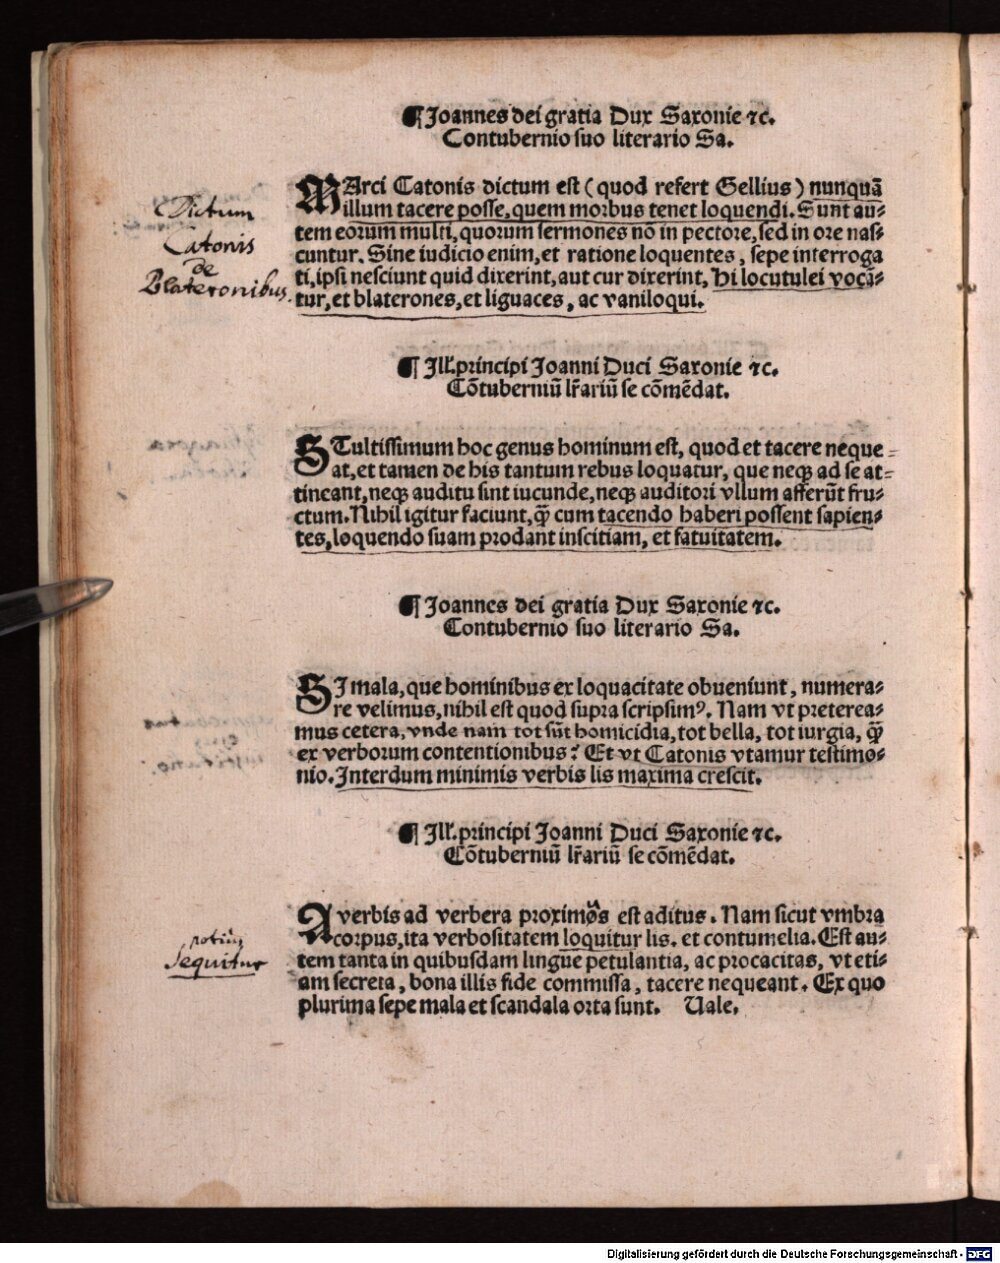 ¶ Joannes dei gratia Dux Saxonie ⁊c.
Contubernio suo literario Sa.
MArci Catonis dictum est (quod refert Gellius) nunquā
illum tacere posse, quem morbus tenet loquendi. Sunt au⸗
tem eorum multi, quorum sermones nō in pectore, sed in ore nas⸗
cuntur. Sine iudicio enim, et ratione loquentes, sepe interroga
ti, ipsi nesciunt quid dixerint, aut cur dixerint, Hi locutulei vocā⸗
tur, et blaterones, et liguaces, ac vaniloqui.
Dictum
Catonis
de
Blateronibus.
¶ Jll'. principi Joanni Duci Saxonie ⁊c.
Cōtuberniū lr̄ariū se cōmēdat.
STultissimum hoc genus hominum est, quod et tacere neque⸗
at, et tamen de his tantum rebus loquatur, que neqꝫ ad se at⸗
tineant, neqꝫ auditu sint iucunde, neqꝫ auditori vllum afferūt fru⸗
ctum. Nihil igitur faciunt, q̄ꝫ cum tacendo haberi possent sapien⸗
tes, loquendo suam prodant inscitiam, et fatuitatem.
¶ Joannes dei gratia Dux Saxonie ⁊c.
Contubernio suo literario Sa.
SJ mala, que hominibus ex loquacitate obueniunt, numera⸗
re velimus, nihil est quod supra scripsimꝰ. Nam vt preterea⸗
mus cetera, vnde nam tot sūt homicidia, tot bella, tot iurgia, q̄ꝫ
ex verborum contentionibus? Et vt Catonis vtamur testimo⸗
nio. Interdum minimis verbis lis maxima crescit.
¶ Jll'. principi Joanni Duci Saxonie ⁊c.
Cōtuberniū lr̄ariū se cōmēdat.
A verbis ad verbera proximos est aditus. Nam sicut vmbra
corpus, ita verbositatem loquitur lis. et contumelia. Est au⸗
tem tanta in quibusdam lingue petulantia, ac procacitas, vt eti⸗
am secreta, bona illis fide commissa, tacere nequeant. Ex quo
plurima sepe mala et scandala orta sunt. Uale.
potiūs
sequitur
Digitalisierung gefördert durch die Deutsche Forschungsgemeinschaft - DFG